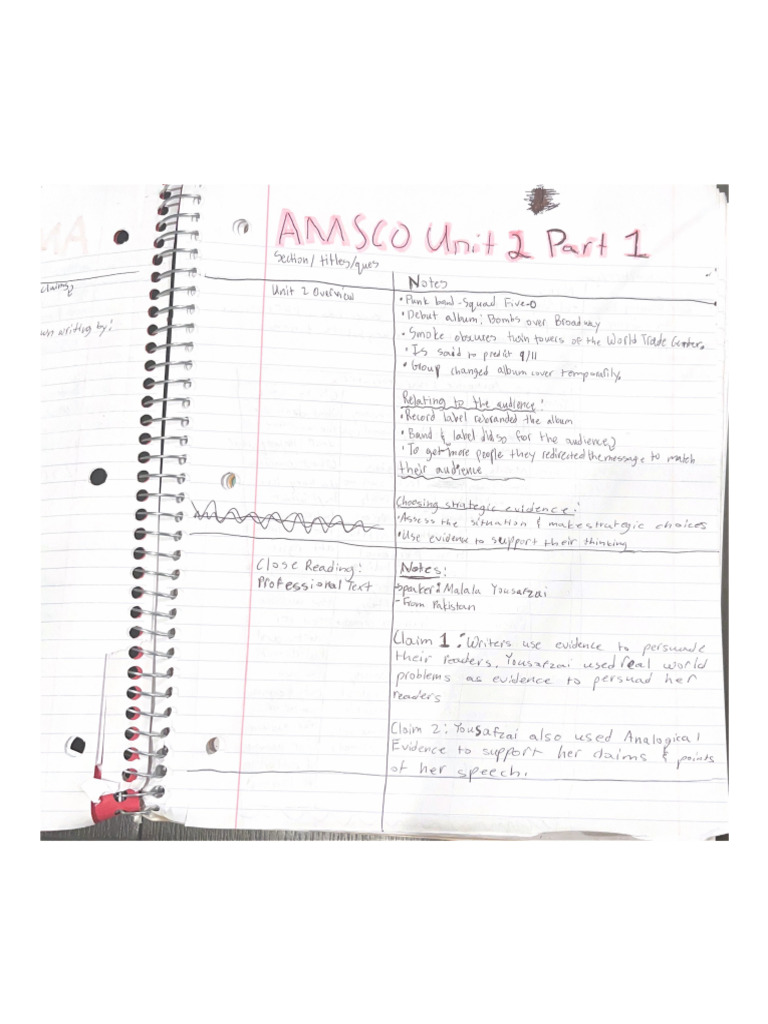 AMSCO Unit 2 Part 1
Section/titles/ques
Notes
Unit 2 Overview
• Punk band - Squad Five-O
• Debut album: Bombs over Broadway
• Smoke obscures twin towers of the World Trade Center.
• Is said to predict 9/11
• Group changed album cover temporarily.
Relating to the audience:
• Record label rebranded the album
• Band & label did so for the audience
• To get more people they redirected the message to match
their audience
Choosing strategic evidence:
• Assess the situation & make strategic choices
• Use evidence to support their thinking
Close Reading:
Professional Text
Notes:
Speaker: Malala Yousafzai
- From Pakistan
Claim 1: Writers use evidence to persuade
their readers. Yousafzai used real world
problems as evidence to persuad her
readers
Claim 2: Yousafzai also used Analogical
Evidence to support her claims & points
of her speech.
writing by: